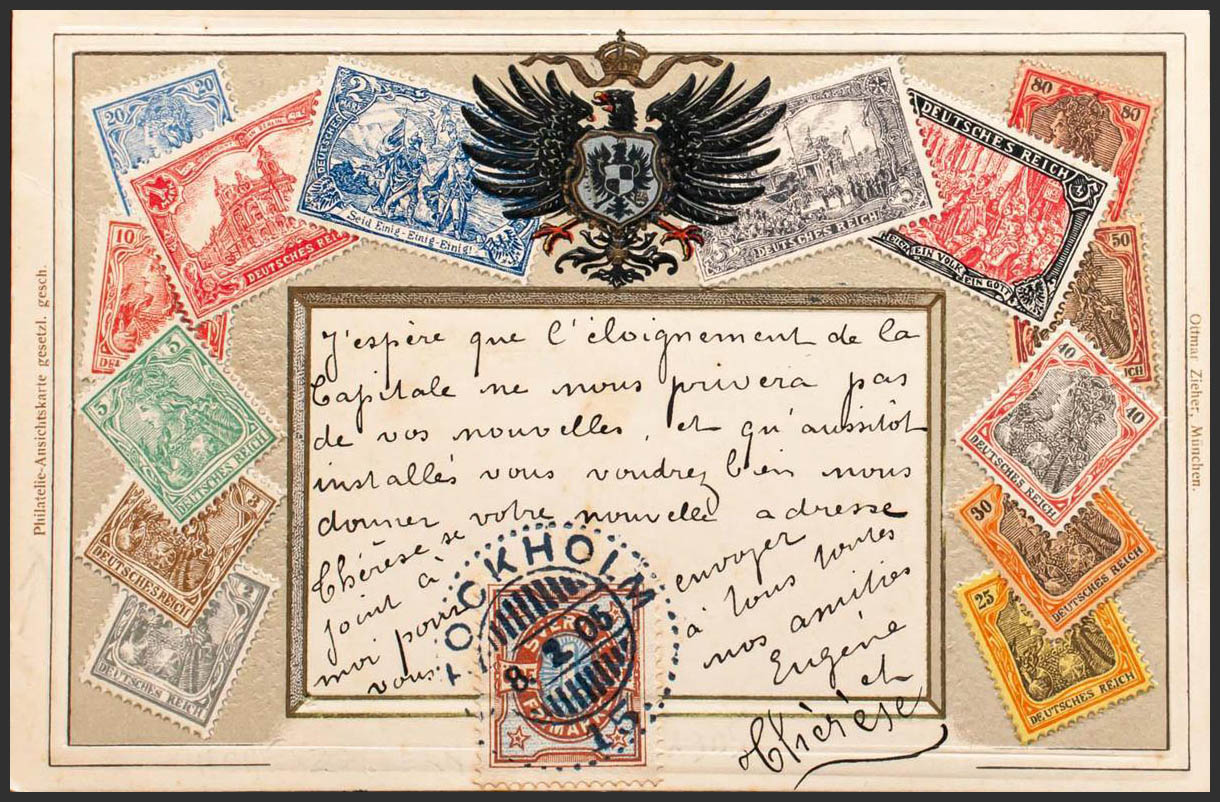 20
20
10
5
3
2
2
DEUTSCHES REICH
Seid Einig-Einig-Einig!
3
DEUTSCHES REICH
DEUTSCHES REICH
EIN VOLK
EIN GOTT
80
80
50
40
40
DEUTSCHES REICH
30
DEUTSCHES REICH
25
DEUTSCHES REICH
DEUTSCHES REICH
DEUTSCHES REICH
DEUTSCHES REICH
Philatelie-Ansichtskarte gesetzl. gesch.
Ottmar Zieher, München.
J'espère que l'éloignement de la
Capitale ne nous privera pas
de vos nouvelles, et qu'aussitôt
installés vous voudrez bien nous
donner votre nouvelle adresse
Thérèse se
joint à
moi pour
vous
envoyer
à tous toutes
nos amitiés
Eugène
et
Thérèse
STOCKHOLM
8. 2. 05
15